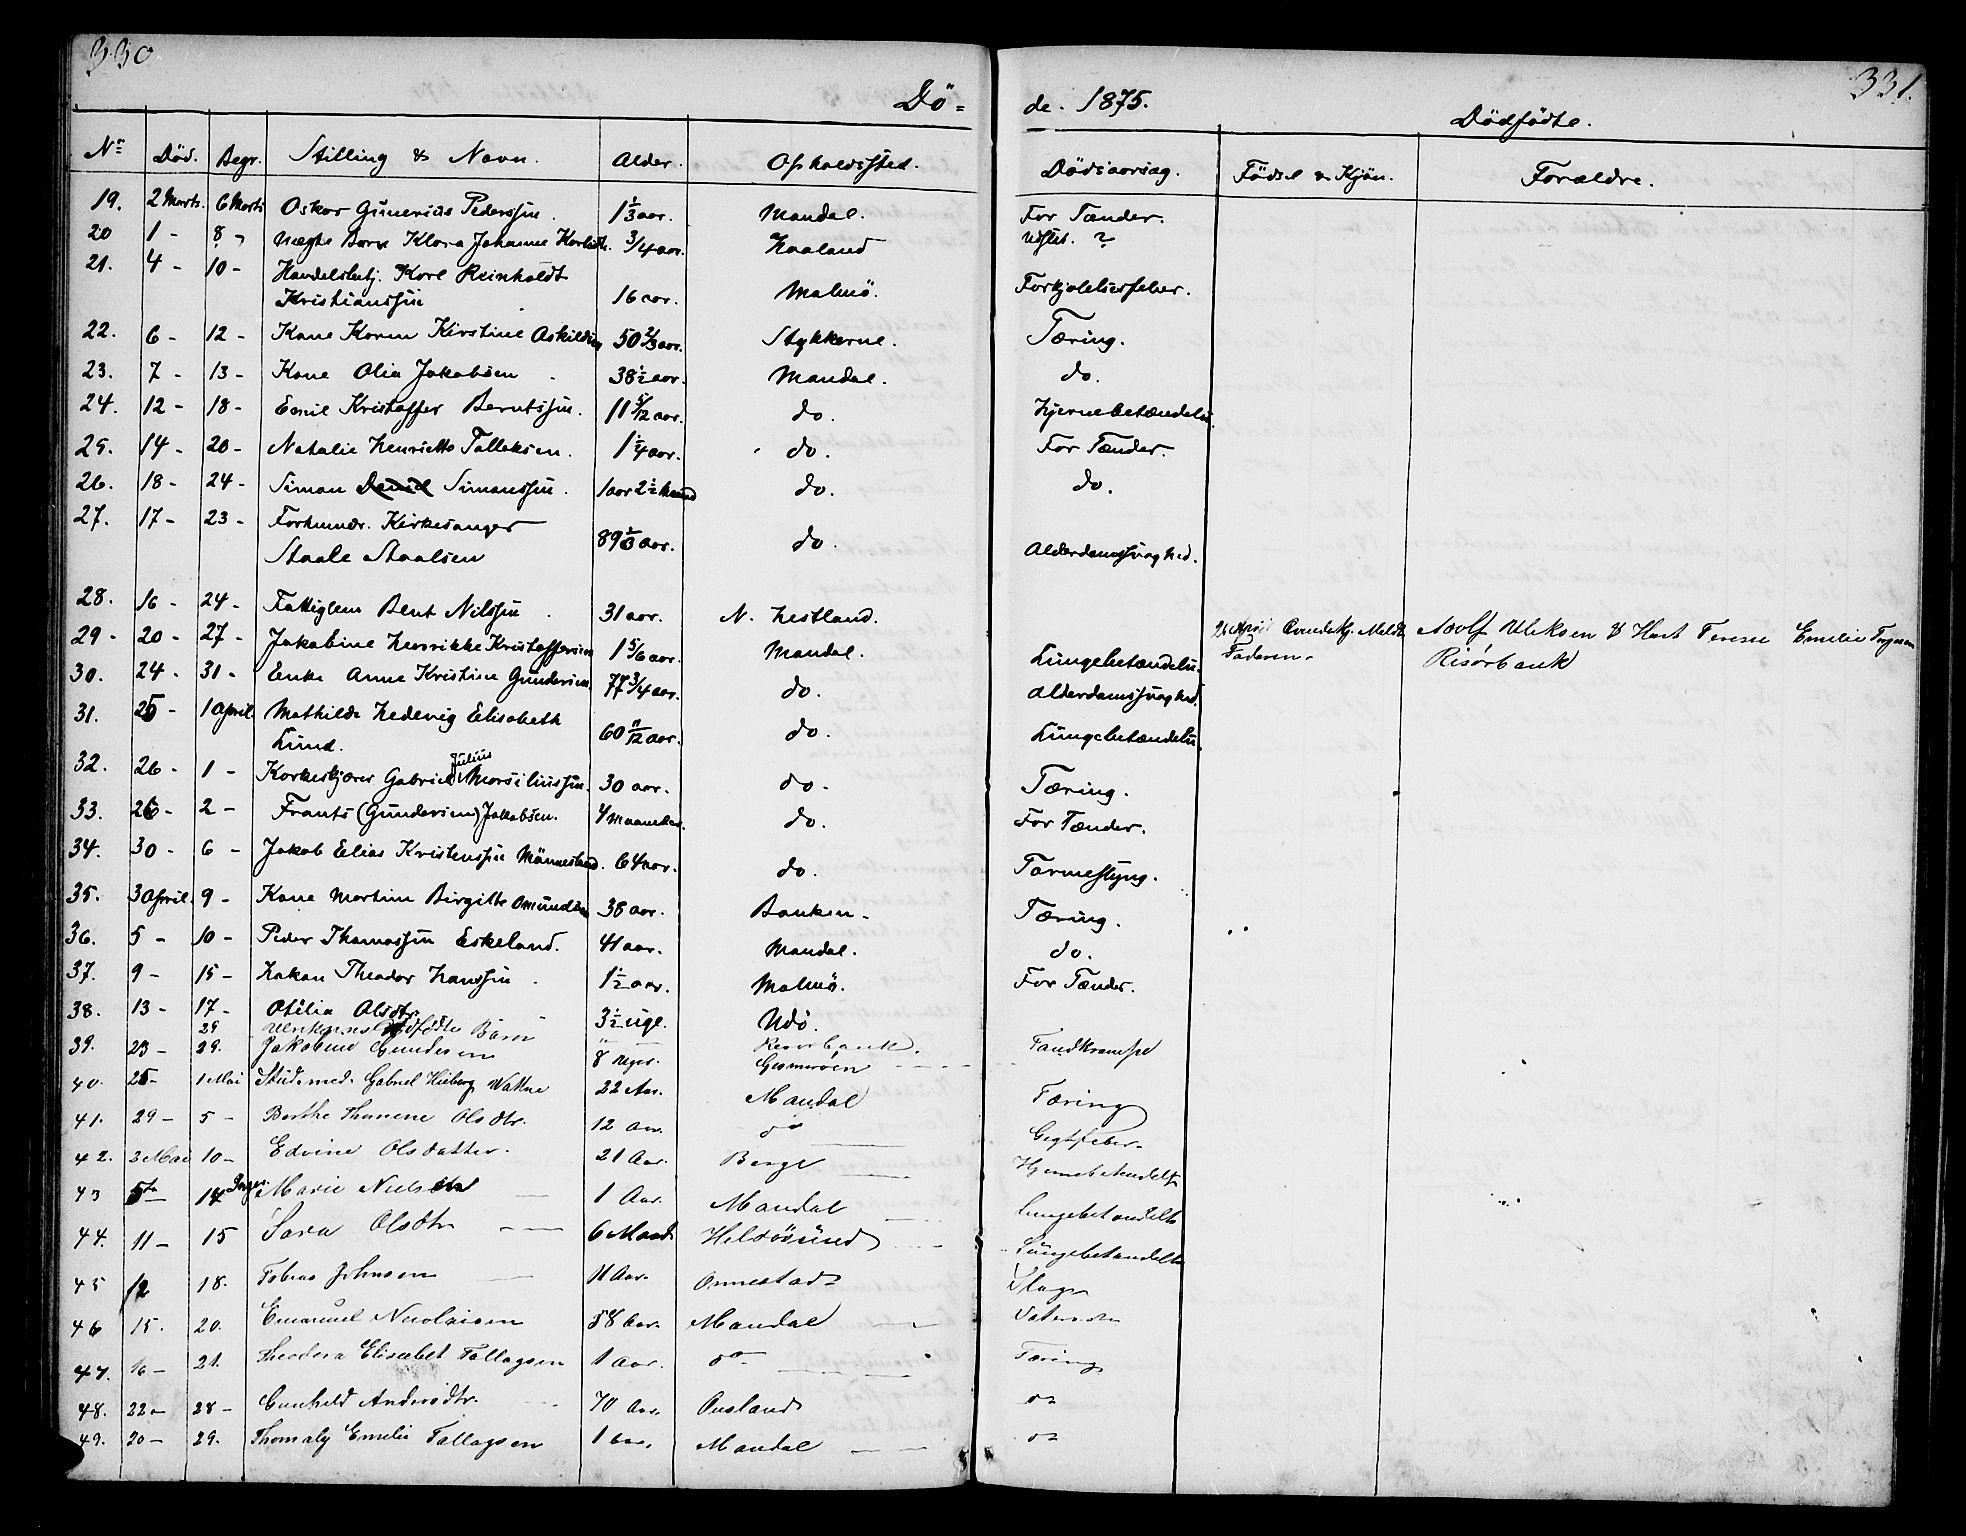 330
331.
Dö-
de. 1875.
Dödfödte.
No Död. Begr. Stilling & Navn. Alder. Opholdssted. Dödsaarsag. Födsel & Kjön. Forældre.
19. 2 Marts. 6 Marts Oskar Gunerius Pederssen. 1 1/3 aar. Mandal. For Tænder.
20 1 - 8 - uægte Barn Klara Johanne 3/4 aar. Haaland ?
21. 4 - 10 - Handelsbetj. Karl Reinholdt
Kristianssen 16 aar. Malmö. Forkjölelsesfeber.
22. 6 - 12 - Kone Karen Kirstine Askildsen 50 2/3 aar. Stykkerne. Tæring.
23. 7 - 13 - Kone Olia Jakobsen 38 1/2 aar. Mandal. do.
24. 12 - 18 - Emil Kristoffer Berntssen. 11 5/12 aar. do. Hjernebetændelse
25. 14 - 20 - Natalie Henriette Tallaksen. 1 1/4 aar. do. For Tænder.
26. 18 - 24 - Simon Daniel Simonssen. 1 aar 2 1/2 Maaned do. do.
27. 17 - 23 - Forhenvær. Kirkesanger
Staale Staalsen 89 1/3 aar. do. Alderdomssvaghed.
28. 16 - 24 - Fattiglem Bent Nilssen 31 aar. N. Hestland.
29 - 20 - 27 - Jakobine Henrikke Kristoffersen 1 5/6 aar. Mandal. Lungebetændelse. 26 April Qvindekj. Meldt Adolf Ulriksen & Hust Terese Emilie
Faderen. Risörbank
30. 24 - 31 - Enke Anne Kristine Gundersen. 77 3/4 aar. do. Alderdomssvaghed.
31. 25 - 1 April Mathilde Hedevig Elisabeth
Lund. 60 11/12 aar. do. Lungebetændelse.
32. 26 - 1 - Korkeskjærer Gabriel Julius Marsiliussen. 30 aar. do. Tæring.
33. 26 - 2 - Frants (Gundersen) Jakobsen. 4 Maaneder. do. For Tænder.
34. 30 - 6 - Jakob Elias Kristenssen Mönnestad. 64 aar. do. Tarmeslyng.
35. 3 April. 9 - Kone Martine Birgitte Omundsen 38 aar. Banken. Tæring.
36. 5 - 10 - Peder Thomassen Eskeland. 41 aar. Mandal. do.
37. 9 - 15 - Hakan Theodor Hanssen 1 1/2 aar. Malmö. For Tænder.
38. 13 - 17 - Otilia Olsdtr. 3 1/2 uge. Udö.
29 Ulriksens dödfödte Barn " Risörbank.
39. 23 - 29. Jakobine Gundersen 8 Uger. Tandkrampe
40. 25 - 1 Mai Stud. med. Gabriel Kieberg Wattne 22 Aar. Mandal Tæring
41. 29 - 5 - Berthe Thomine Olsdtr. 12 Aar do Gigtfeber.
42. 3 Mai 10 - Edvine Olsdatter. 21 Aar. Berge Hjernebetændelse
43 5te 14 Marie Nielsen 1 Aar. Mandal Lungebetændelse
44. 11 - 15 Sara Olsdtr 6 Maand Hilsösund Lungebetændelse
45 12 18. Tobias Johnsen 11 Aar. Ormestad Slag
46 15. 20. Emanuel Nicolaisen 58 Aar. Mandal
47. 16 - 21. Theodora Elisabet Tallagsen 1 Aar. do Tæring
48. 22 - 28 - Gunhild Andersdtr. 70 Aar. Ousland do
49. 20 - 29. Thomaly Emelie Tallagsen 1 Aar. Mandal do